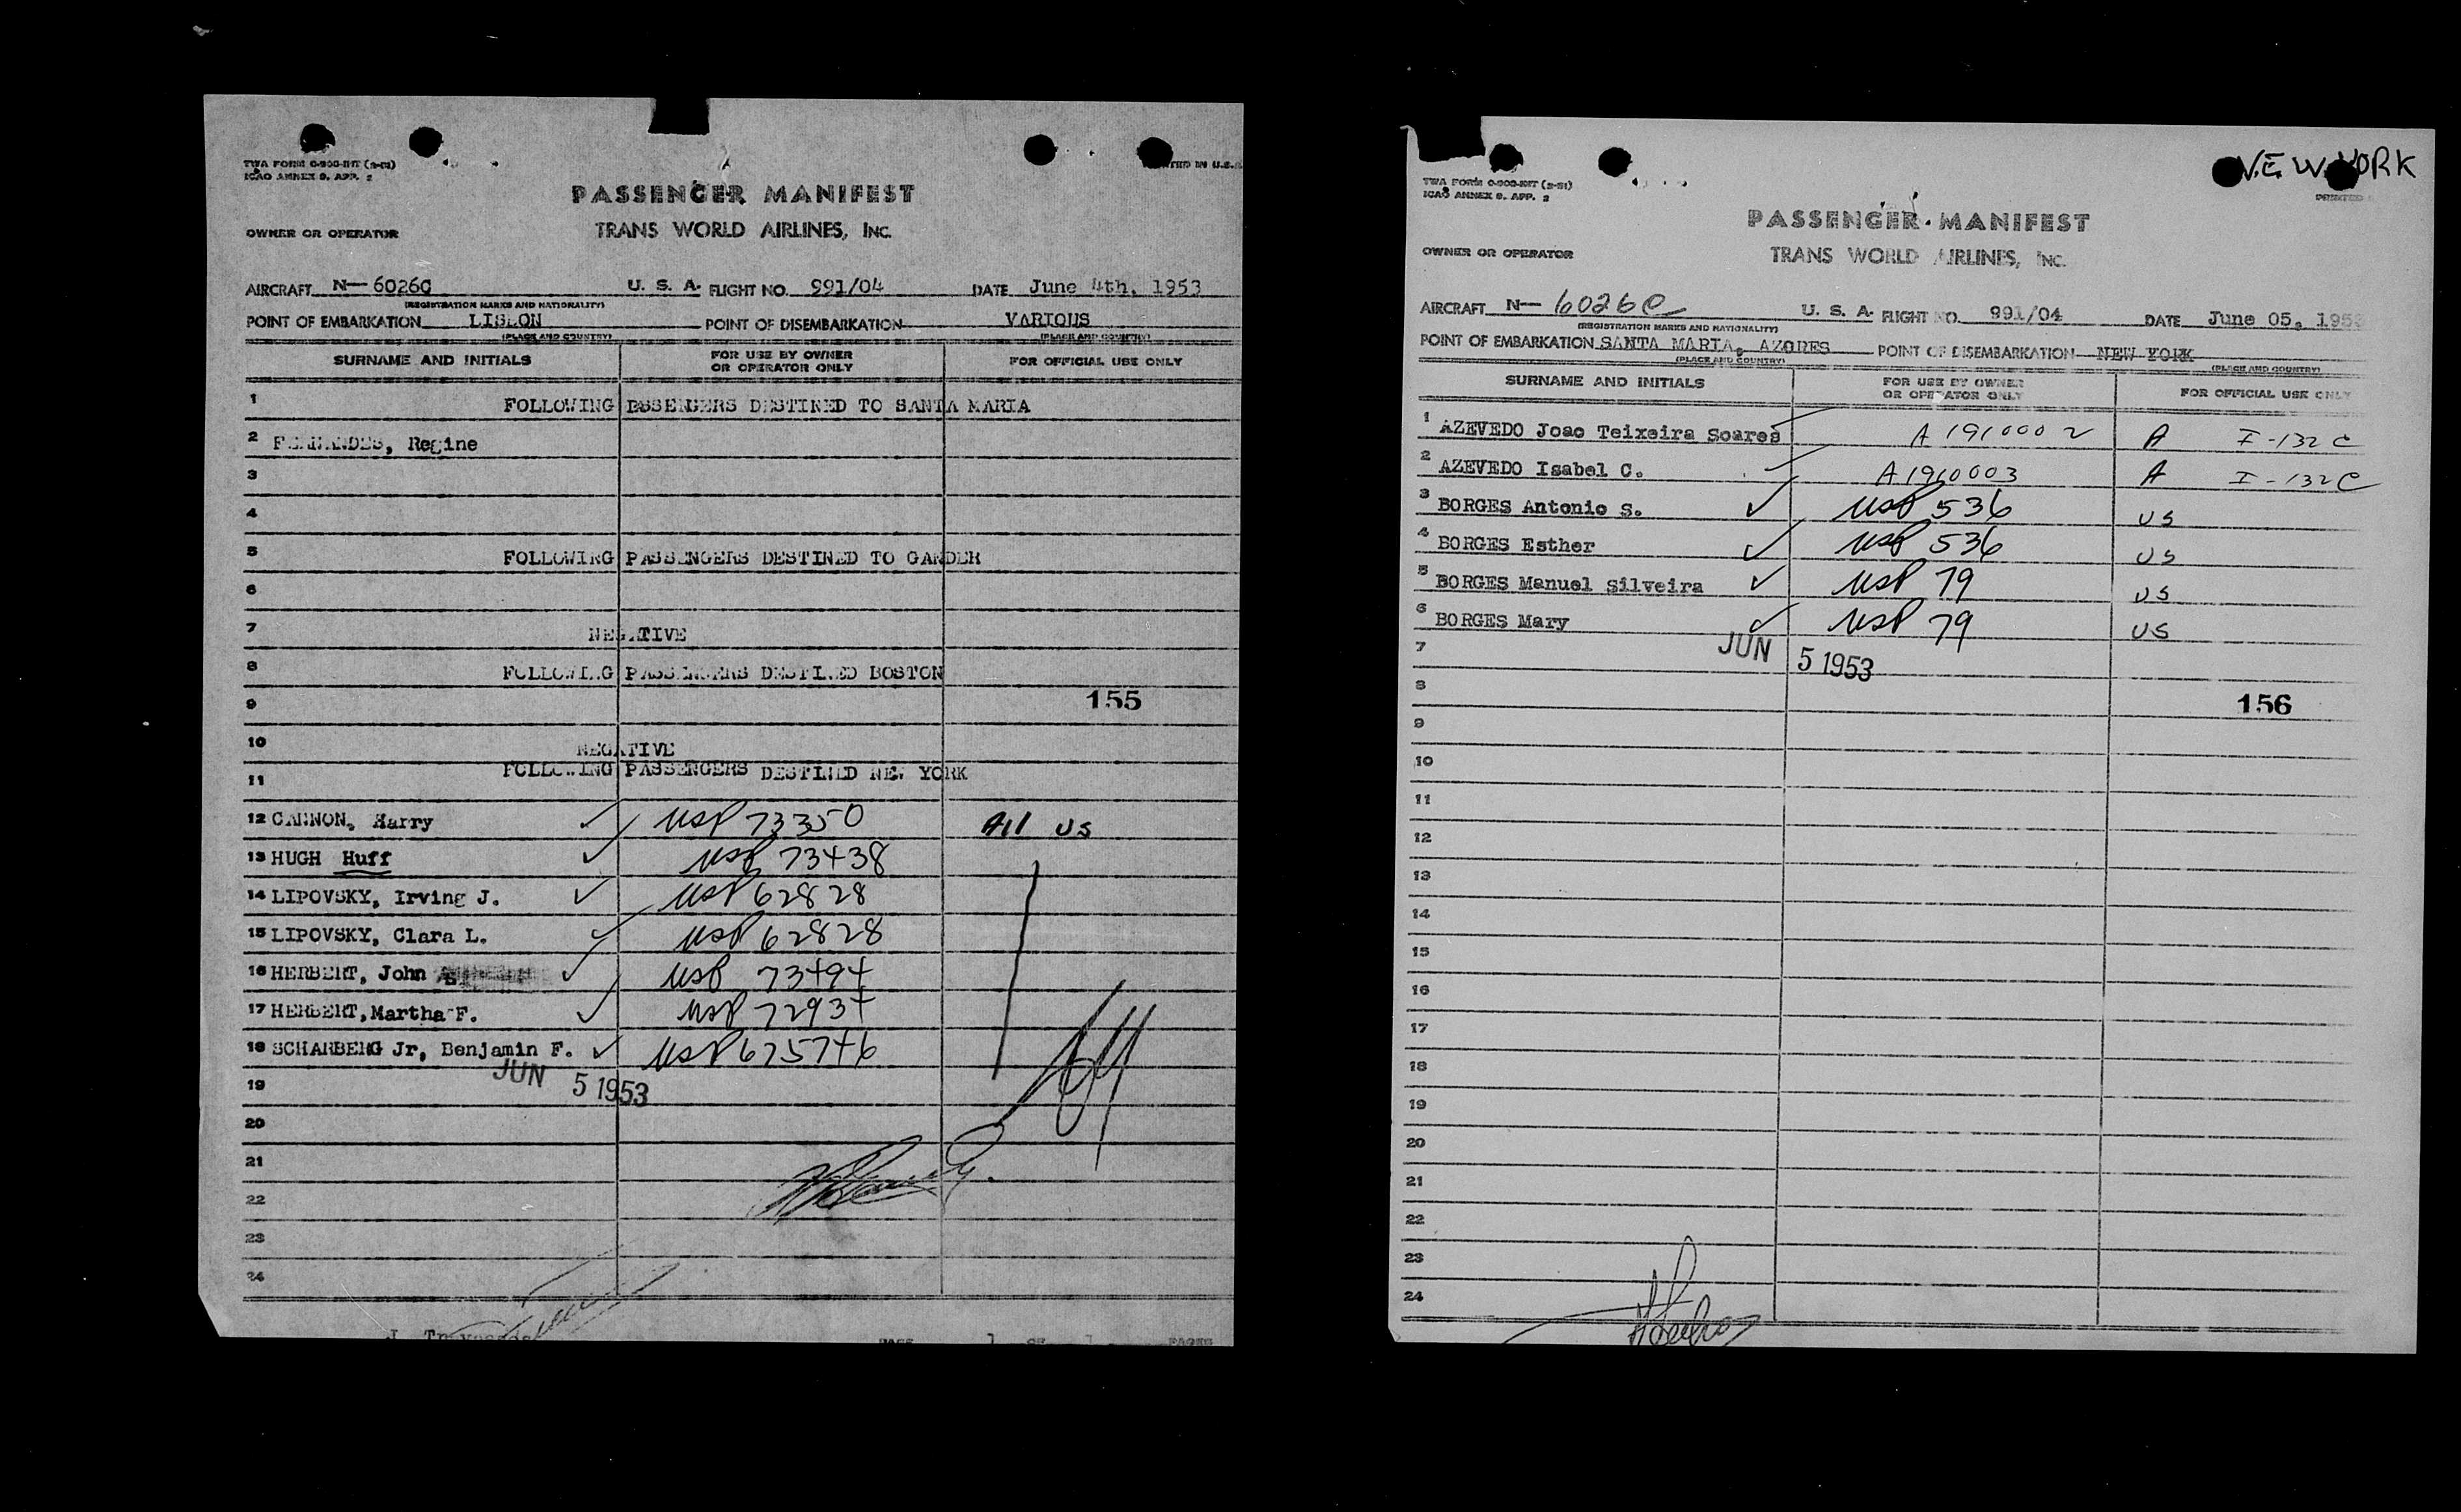 TWA FORM O-900-INT (2-51)
ICAO ANNEX 9, APP. 2
IN U.S.
PASSENGER MANIFEST
OWNER OR OPERATOR
TRANS WORLD AIRLINES, INC.
AIRCRAFT N— 6026C U. S. A. FLIGHT NO. 991/04 DATE June 4th, 1953
(REGISTRATION MARKS AND NATIONALITY)
POINT OF EMBARKATION LISBON POINT OF DISEMBARKATION VARIOUS
(PLACE AND COUNTRY) (PLACE AND COUNTRY)
SURNAME AND INITIALS FOR USE BY OWNER OR OPERATOR ONLY FOR OFFICIAL USE ONLY
1 FOLLOWING PSSENGERS DESTINED TO SANTA MARIA
2 FERNANDES, Regine
3
4
5 FOLLOWING PASSENGERS DESTINED TO GANDER
6
7 NEGATIVE
8 FOLLOWING PASSENGERS DESTINED BOSTON
9 155
10 NEGATIVE
11 FOLLOWING PASSENGERS DESTINED NEW YORK
12 CANNON, Harry USP 73350 All US
13 HUGH Huff USP 73438
14 LIPOVSKY, Irving J. USP 62828
15 LIPOVSKY, Clara L. USP 62828
16 HERBERT, John USP 73494
17 HERBERT, Martha F. USP 72934
18 SCHARBERG Jr, Benjamin F. USP 625746
JUN 5 1953
19
20
21
22
23
24
PAGE 1 OF 1 PAGES
N.E.W. YORK
TWA FORM O-900-INT (2-51)
ICAO ANNEX 9, APP. 2
PRINTED
PASSENGER MANIFEST
OWNER OR OPERATOR
TRANS WORLD AIRLINES, INC.
AIRCRAFT N— 6026C U. S. A. FLIGHT NO. 991/04 DATE June 05, 1953
(REGISTRATION MARKS AND NATIONALITY)
POINT OF EMBARKATION SANTA MARIA, AZORES POINT OF DISEMBARKATION NEW YORK
(PLACE AND COUNTRY) (PLACE AND COUNTRY)
SURNAME AND INITIALS FOR USE BY OWNER OR OPERATOR ONLY FOR OFFICIAL USE ONLY
1 AZEVEDO Joao Teixeira Soares A 1910002 A I-132 C
2 AZEVEDO Isabel C. A 1910003 A I-132 C
3 BORGES Antonio S. USP 536 US
4 BORGES Esther USP 536 US
5 BORGES Manuel Silveira USP 79 US
6 BORGES Mary USP 79 US
7 JUN 5 1953
8 156
9
10
11
12
13
14
15
16
17
18
19
20
21
22
23
24